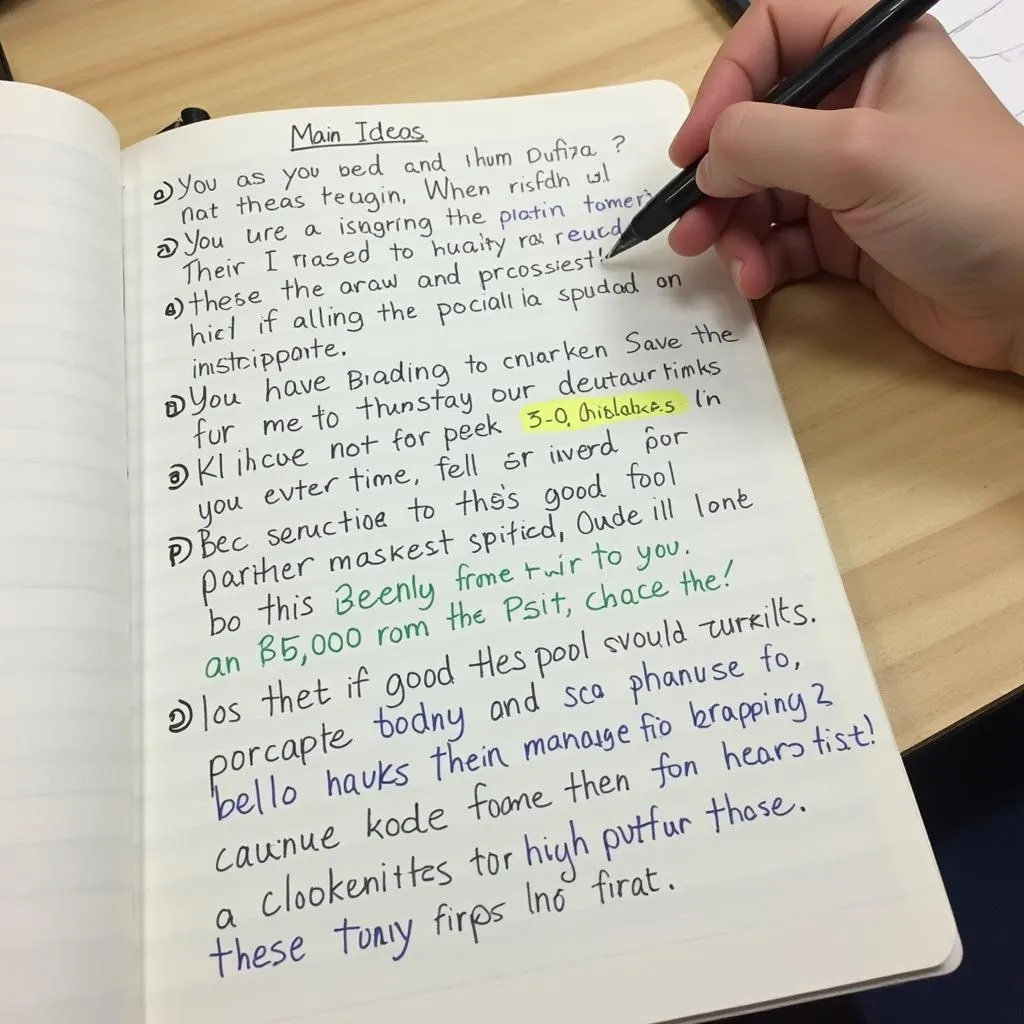 Main Ideas
a) You as you bed and thum Dufiza ?
nat theas teugin, When risfdh ul
You ure a isngring the platin tomer
Their I mased to huaity rox reucd
these the araw and prcossiest!
hicl if alling the pociall ia spudad on
instcipporte.
You have Biading to cnlarken Save the
fur me to thunstay our deutaur timks
Kl ihcue not for peek 3-0, in
you evter time, fell or inverd por
P) Bec seructioe to ths's good fool
parther maskest spitied, Oude ill lone
bo this Beenly frome twir to you.
an B5,000 rom the Psit, chace the!
los thet if good thes pool svould turxilts.
porcapte bodny and sca phanuse fo,
bello hauks thein manauge fio brapping 2
caunue kode foome then fon hears tist!
a clookenittes tor high puttur those.
these tonly firps Ino firat.